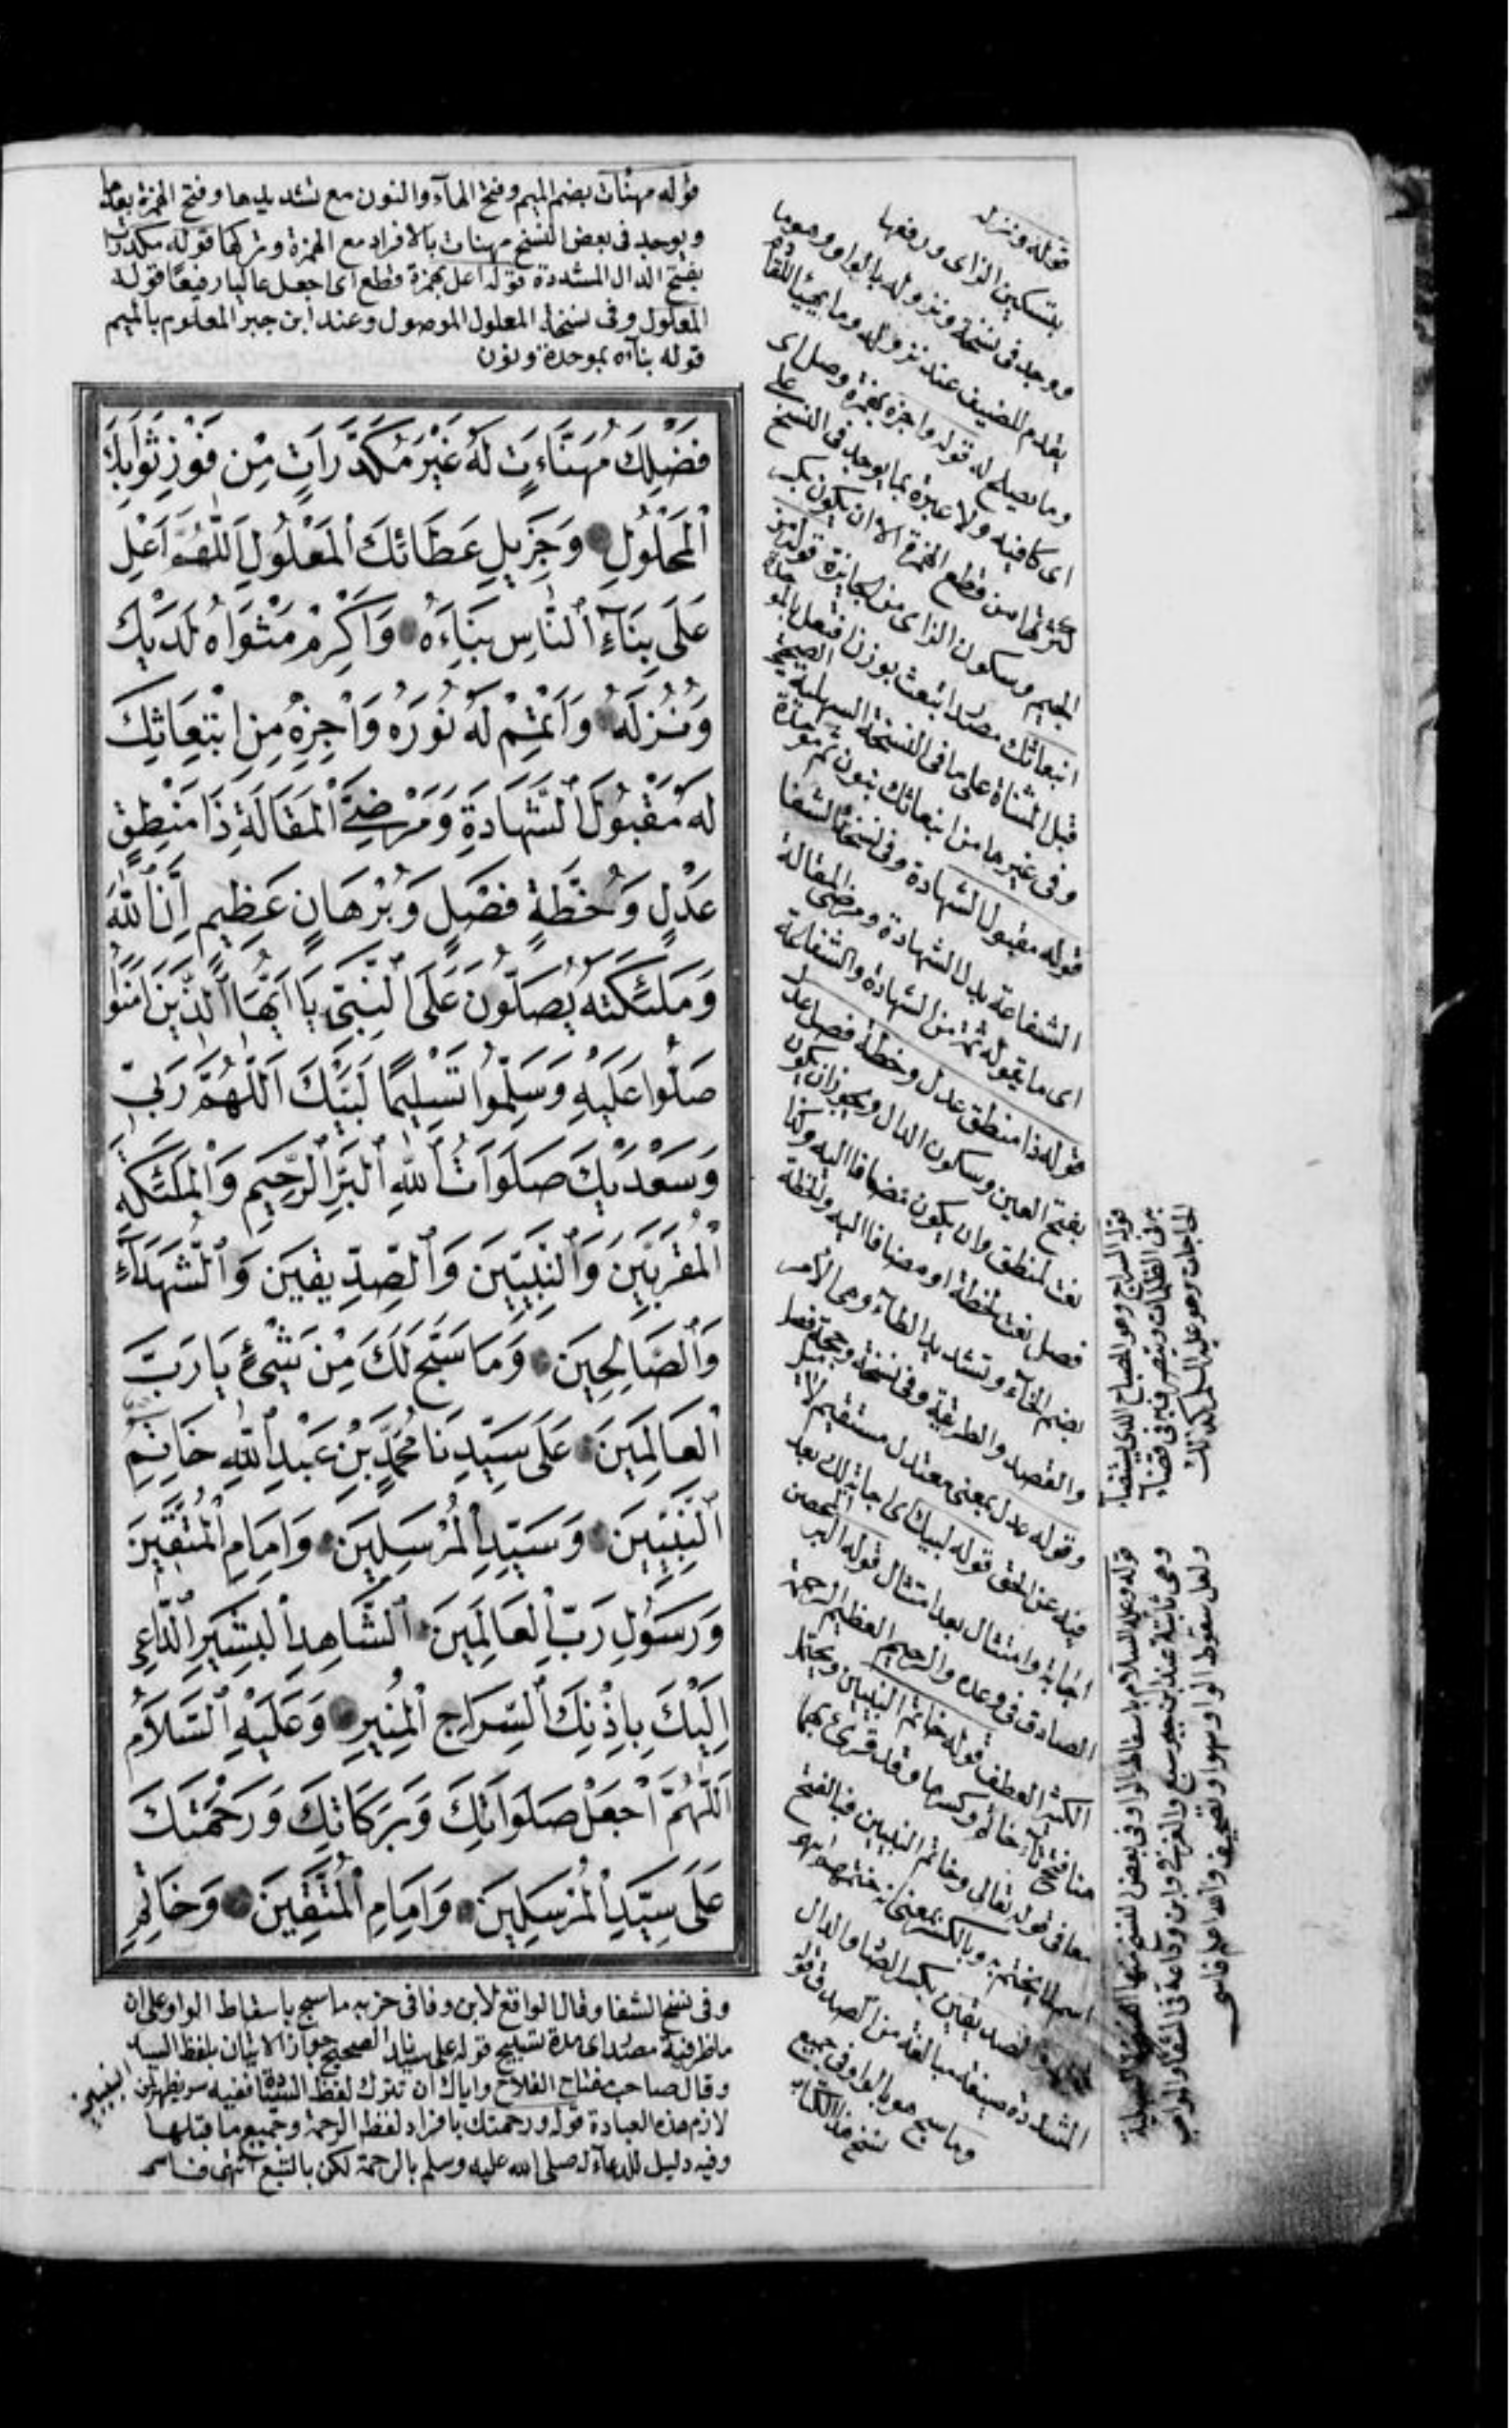 قوله مهنئات بضم الميم وفتح الهآء والنون مع تشديدها وفتح الهمزة بعدها
ويوجد فى بعض النسخ مهنات بالافراد مع الهمزة وتركها قوله مكدرات
بفتح الدال المشددة قوله اعل بهمزة قطع اى اجعل عاليا رفيعا قوله
المعلول وفى نسخة المعلول الموصول وعند ابن جبر المعلوم بالميم
قوله بنآءه بموحدة ونون
فَضْلِكَ مُهَنَّاءَتٍ لَهُ غَيْرَ مُكَدَّرَاتٍ مِنْ فَوْزِ ثَوَابِكَ
ٱلْمَحْلُولِ وَجَزِيلِ عَطَائِكَ ٱلْمَعْلُولِ اَللّٰهُمَّ اَعْلِ
عَلَى بِنَآءِ ٱلنَّاسِ بِنَاءَهُ وَاَكْرِمْ مَثْوَاهُ لَدَيْكَ
وَنُزُلَهُ وَاَتْمِمْ لَهُ نُورَهُ وَاَجْزِهِ مِنِ ابْتِعَاثِكَ
لَهُ مَقْبُولَ ٱلشَّهَادَةِ وَمَرْضِيَّ ٱلْمَقَالَةِ ذَا مَنْطِقٍ
عَدْلٍ وَخُطَّةٍ فَصْلٍ وَبُرْهَانٍ عَظِيمٍ اِنَّ ٱللّٰهَ
وَمَلٰئِكَتَهُ يُصَلُّونَ عَلَى ٱلنَّبِىِّ يَا اَيُّهَا ٱلَّذِينَ اٰمَنُوا
صَلُّوا عَلَيْهِ وَسَلِّمُوا تَسْلِيمًا لَبَّيْكَ اَللّٰهُمَّ رَبِّي
وَسَعْدَيْكَ صَلَوَاتُ ٱللّٰهِ ٱلْبَرِّ ٱلرَّحِيمِ وَٱلْمَلٰئِكَةِ
ٱلْمُقَرَّبِينَ وَٱلنَّبِيِّينَ وَٱلصِّدِّيقِينَ وَٱلشُّهَدَآءِ
وَٱلصَّالِحِينَ وَمَا سَبَّحَ لَكَ مِنْ شَيْءٍ يَا رَبَّ
ٱلْعَالَمِينَ عَلَى سَيِّدِنَا مُحَمَّدِ بْنِ عَبْدِ ٱللّٰهِ خَاتِمِ
ٱلنَّبِيِّينَ وَسَيِّدِ ٱلْمُرْسَلِينَ وَاِمَامِ ٱلْمُتَّقِينَ
وَرَسُولِ رَبِّ ٱلْعَالَمِينَ ٱلشَّاهِدِ ٱلْبَشِيرِ ٱلدَّاعِى
اِلَيْكَ بِاِذْنِكَ ٱلسِّرَاجِ ٱلْمُنِيرِ وَعَلَيْهِ ٱلسَّلَامُ
اَللّٰهُمَّ ٱجْعَلْ صَلَوَاتِكَ وَبَرَكَاتِكَ وَرَحْمَتَكَ
عَلَى سَيِّدِ ٱلْمُرْسَلِينَ وَاِمَامِ ٱلْمُتَّقِينَ وَخَاتِمِ
وفى نسخ الشفا وقال الواقع لابن وفا فى حزبه ما سبح باسقاط الواو على ان
ما ظرفية مصدرية اى مدة تسبيح قوله على سيدنا الصحيح جواز الاتيان بلفظ السيد
وقال صاحب مفتاح الفلاح واياك ان تترك لفظ السيادة ففيه سر يظهر لمن
لازم هذه العبادة قوله ورحمتك بافراد لفظ الرحمة وجميع ما قبلها
وفيه دليل للدعآء له صلى الله عليه وسلم بالرحمة لكن بالتبع انتهى فاسى
قوله ونزله
بتسكين الزاى ورفعها
ووجد فى نسخة ونزوله بالواو وهو ما
يقدم للضيف عند نزوله وما يهيأ للقآءه
وما يصلح له قوله واجزه بهمزة وصل اى
اى كافيه ولا عبرة بما يوجد فى النسخ على
كثرتها من قطع الهمزة الا ان يكون بكسر
الجيم وسكون الزاى من الجائزة قوله من
ابتعاثك مصدر ابتعث بوزن افتعل بالموحدة
قبل المثناة على ما فى النسخة السهلية الصحيحة
وفى غيرها من انبعاثك بنون ثم موحدة
قوله مقبول الشهادة وفى نسخ الشفا
الشفاعة بدل الشهادة ومرضى المقالة
اى ما يقوله ثم من الشهادة والشفاعة
قوله ذا منطق عدل وخطة فصل عدل
بفتح العين وسكون الدال ويجوز ان يكون
نعت لمنطق وان يكون مضافا اليه وكذا
فصل نعت لخطة او مضافا اليه والخطة
بضم الخآء وتشديد الطآء وهى الامر
والقصد والطريقة وفى نسخة وحجة فصل
وقوله عدل بمعنى معتدل مستقيم لا يميل
فيه عن الحق قوله لبيك اى اجابة لك بعد
اجابة وامتثال بعد امتثال قوله البر المحسن
الصادق فى وعده والرحيم العظيم الرحمة
الكثير العطف قوله خاتم النبيين ويحتمل
هنا فتح تآء خاتم وكسرها وقد قرئ بهما
معا فى قوله تعالى وخاتم النبيين فبالفتح
اسم لما يختم به وبالكسر بمعنى انه ختمهم
الصديقين بكسر الصاد والدال
المشددة صيغة مبالغة من الصدق قوله
وما سبح هو بالواو فى جميع
نسخ هذا الكتاب
قوله السراج وهو المصباح الذى يستضاء
به فى الظلمات ويتبصر به فى قضآء
الحاجات وهو عليه السلم كذلك
قوله وعليه السلام باسقاط الواو فى بعض النسخ منها النسخة السهلية
وهى ثابتة عند ابن جبر وابن سبع والغزفى وابن وداعة فى الشفا والمواهب
ولعل سقوط الواو سهوا وتصحيف والله اعلم فاسى